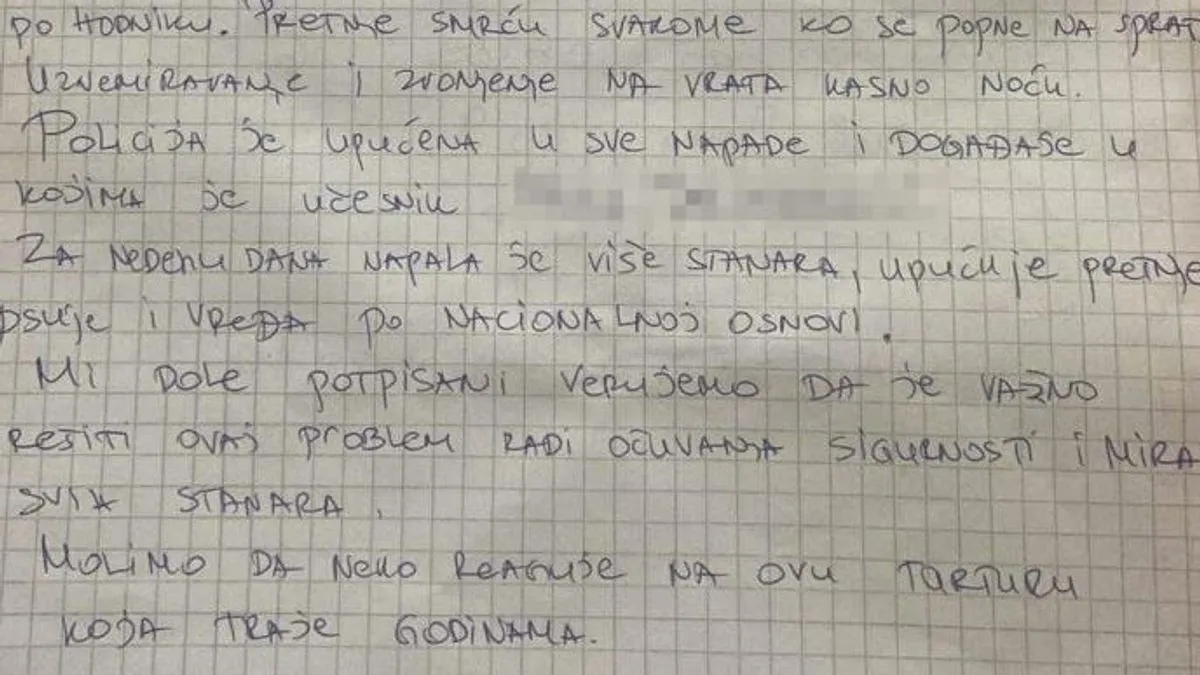 PO HODNIKU. PRETNJE SMRĆU SVAKOME KO SE POPNE NA SPRAT
UZNEMIRAVANJE I ZVONJENJE NA VRATA KASNO NOĆU.
POLICIJA JE UPUĆENA U SVE NAPADE I DOGAĐAJE U
KOJIMA JE UČESNIK
ZA NEDELJU DANA NAPALA JE VIŠE STANARA, UPUĆUJE PRETNJE
PSUJE I VREĐA PO NACIONALNOJ OSNOVI.
MI DOLE POTPISANI VERUJEMO DA JE VAŽNO
REŠITI OVAJ PROBLEM RADI OČUVANJA SIGURNOSTI I MIRA
SVIH STANARA.
MOLIMO DA NEKO REAGUJE NA OVU TORTURU
KOJA TRAJE GODINAMA.